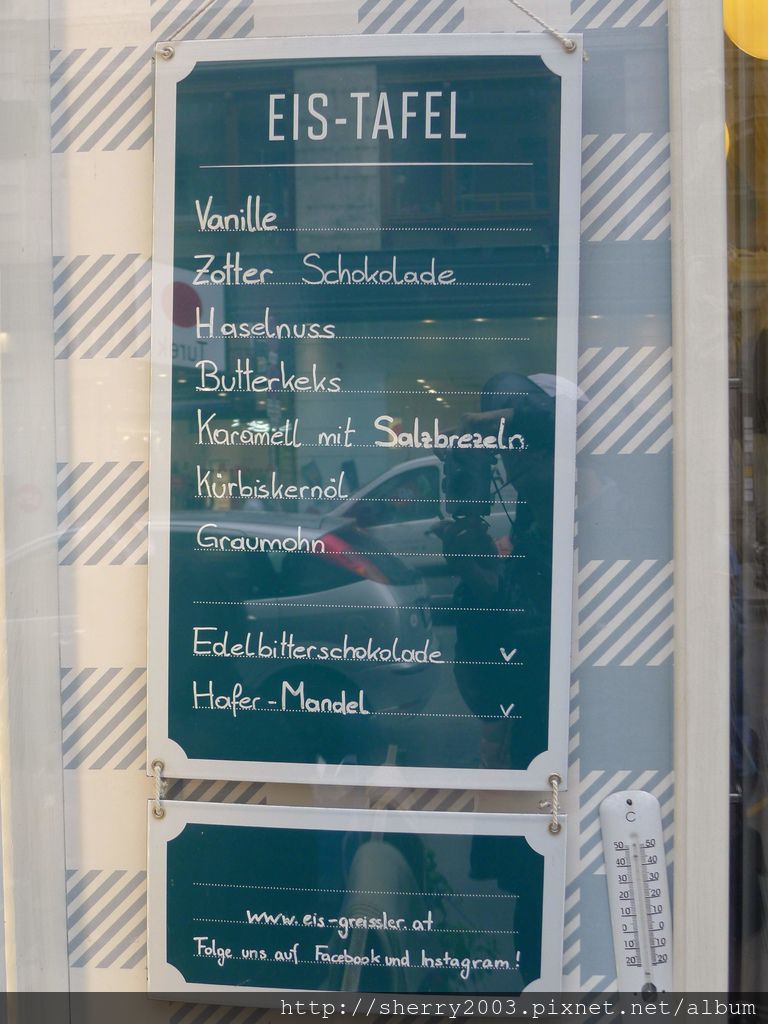 EIS-TAFEL
Vanille
Zotter Schokolade
Haselnuss
Butterkeks
Karamell mit Salzbrezeln
Kürbiskernöl
Graumohn
Edelbitterschokolade v
Hafer-Mandel v
www.eis-greissler.at
Folge uns auf Facebook und Instagram!
C
50 50
40 40
30 30
20 20
10 10
0 0
10 10
20 20
http://sherry2003.pixnet.net/album